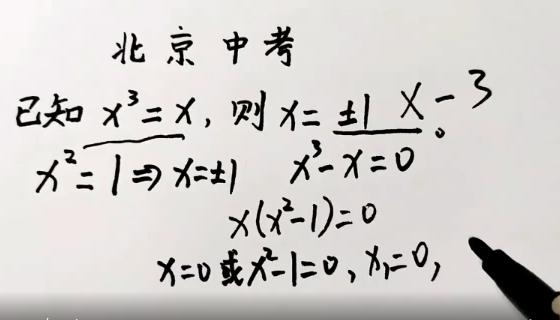 北京中考
已知 x³=x, 则 x= ±1 X -3。
x²=1⇒x=±1 x³-x=0
x(x²-1)=0
x=0或x²-1=0, x₁=0,